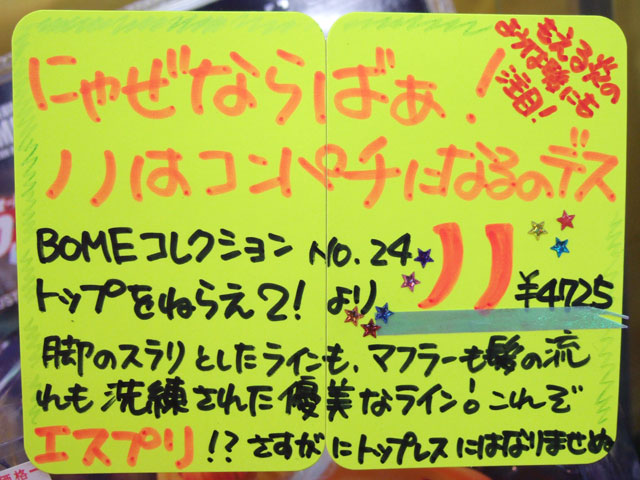 にゃぜならばぁ!
もえる炎の
ような髪にも
注目!
ノノはコンパチになるのデス
BOMEコレクション No.24
トップをねらえ2!より ノノ ¥4725
脚のスラリとしたラインも、マフラーも髪の流
れも洗練された優美なライン!こんぞ
エスプリ!?さすがにトップレスにはなりませぬ